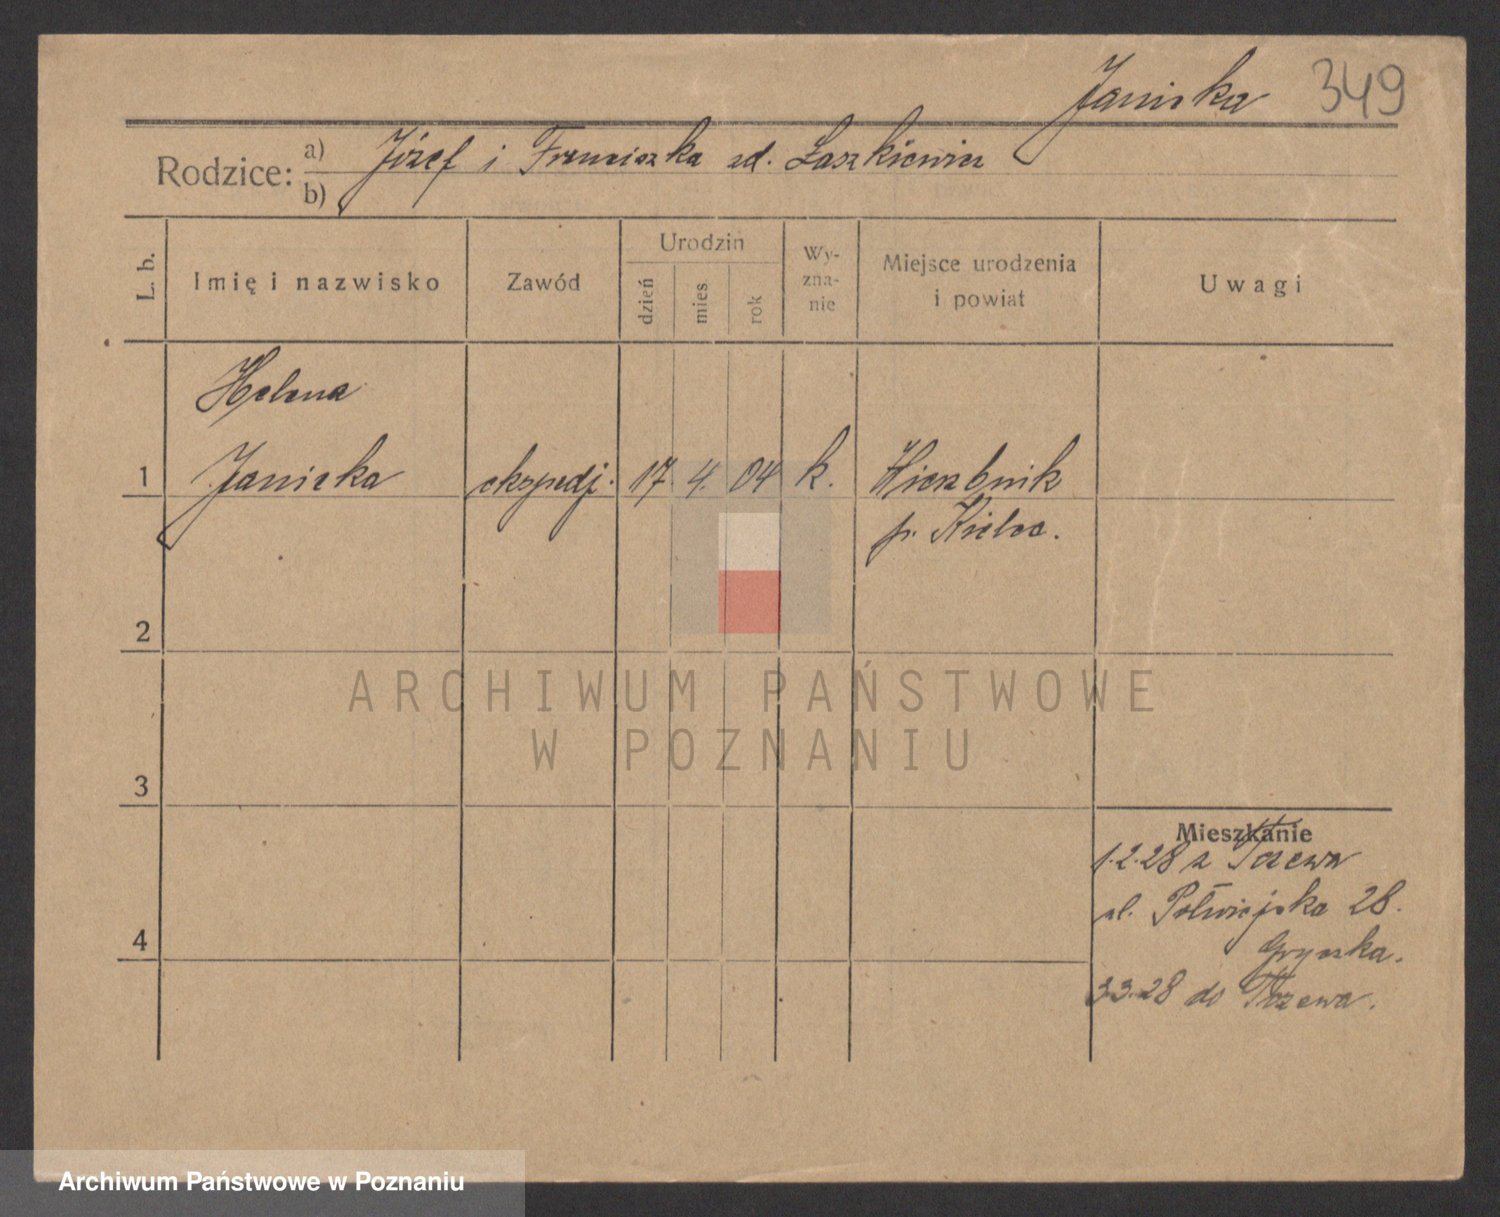 Janicka 349
Rodzice: a) Józef i Franciszka zd. Łaszkiewicz
b)
L. b. Imię i nazwisko Zawód Urodzin dzień mies rok Wyznanie Miejsce urodzenia i powiat Uwagi
Helena
1 Janicka ekspedj. 17. 4. 04 k. Wierzbnik
p. Kielce.
2
ARCHIWUM PAŃSTWOWE
W POZNANIU
3
Mieszkanie
1.2.28 z Tczewa
ul. Półwiejska 28.
4
3.3.28 do Tczewa.
Archiwum Państwowe w Poznaniu